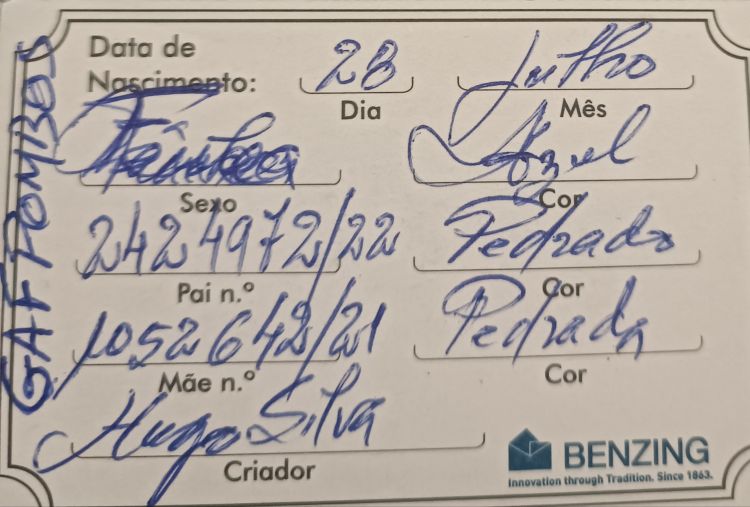 GAF POMBOS
Data de
Nascimento: 28 Julho
Dia Mês
Azul
Sexo Cor
2424972/22 Pedrado
Pai n.º Cor
1052642/21 Pedrada
Mãe n.º Cor
Hugo Silva
Criador
BENZING
Innovation through Tradition. Since 1863.